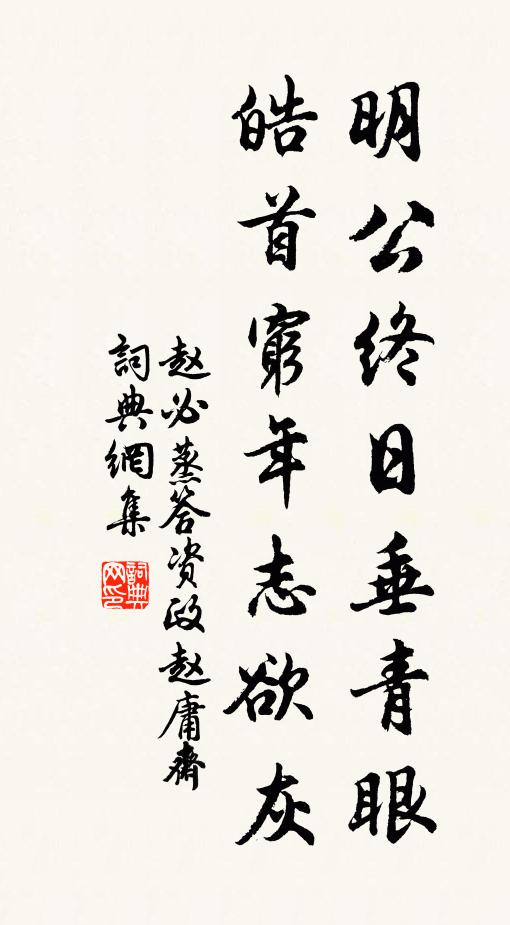 明公終日垂青眼
皓首窮年志欲灰
赵必蒸答资政赵庸齋
詞典網集
詞典网印